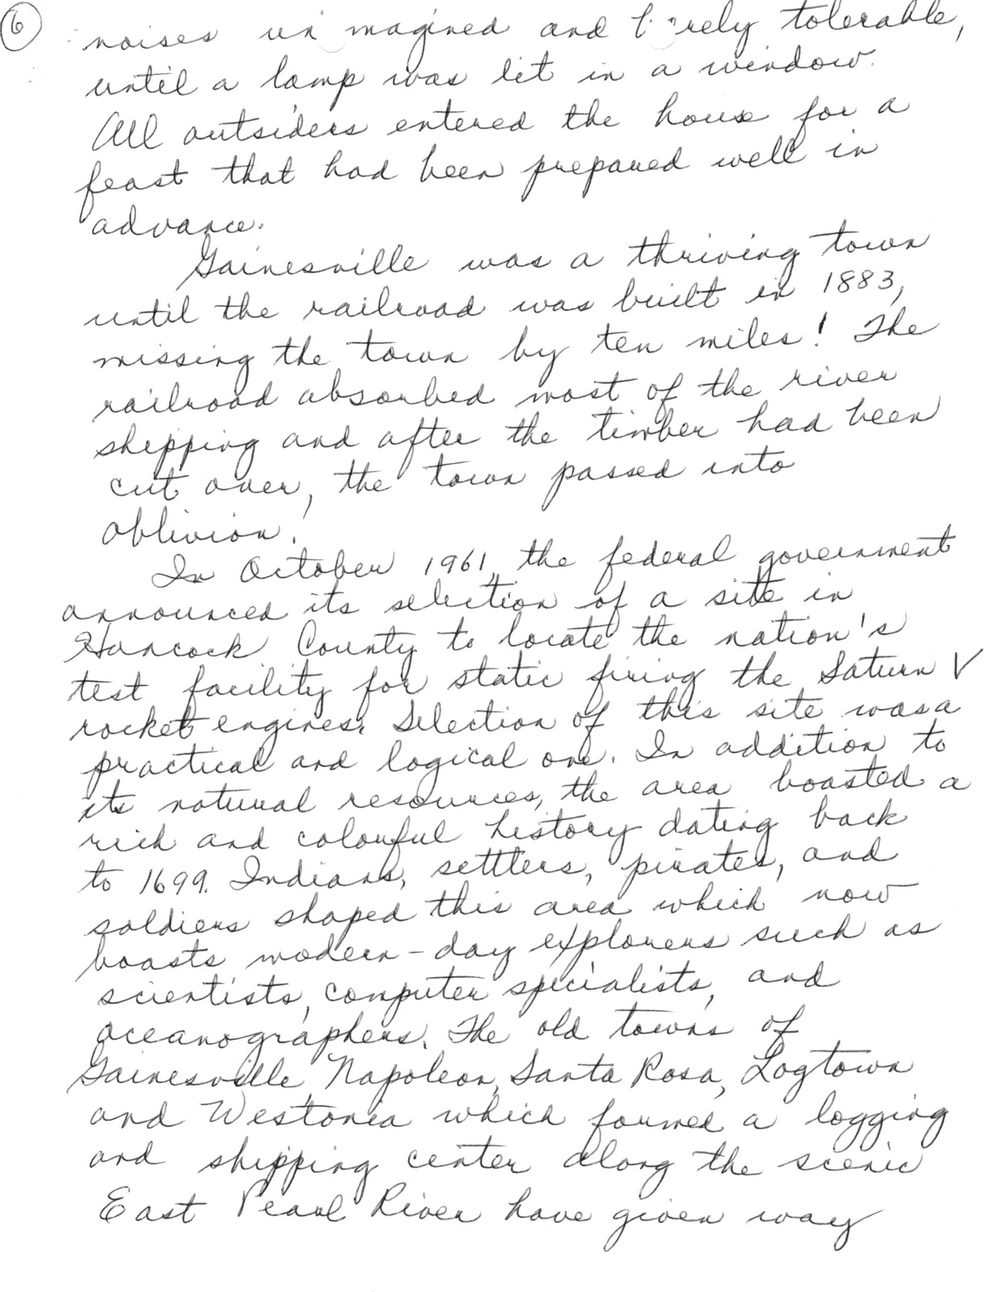 6
noises unimagined and barely tolerable,
until a lamp was lit in a window.
All outsiders entered the house for a
feast that had been prepared well in
advance.
Gainesville was a thriving town
until the railroad was built in 1883,
missing the town by ten miles! The
railroad absorbed most of the river
shipping and after the timber had been
cut over, the town passed into
oblivion.
In October 1961, the federal government
announced its selection of a site in
Hancock County to locate the nation's
test facility for static firing the Saturn V
rocket engines. Selection of this site was a
practical and logical one. In addition to
its natural resources, the area boasted a
rich and colourful history dating back
to 1699. Indians, settlers, pirates, and
soldiers shaped this area which now
boasts modern-day explorers such as
scientists, computer specialists, and
oceanographers. The old towns of
Gainesville, Napoleon, Santa Rosa, Logtown
and Westonia which formed a logging
and shipping center along the scenic
East Pearl River have given way